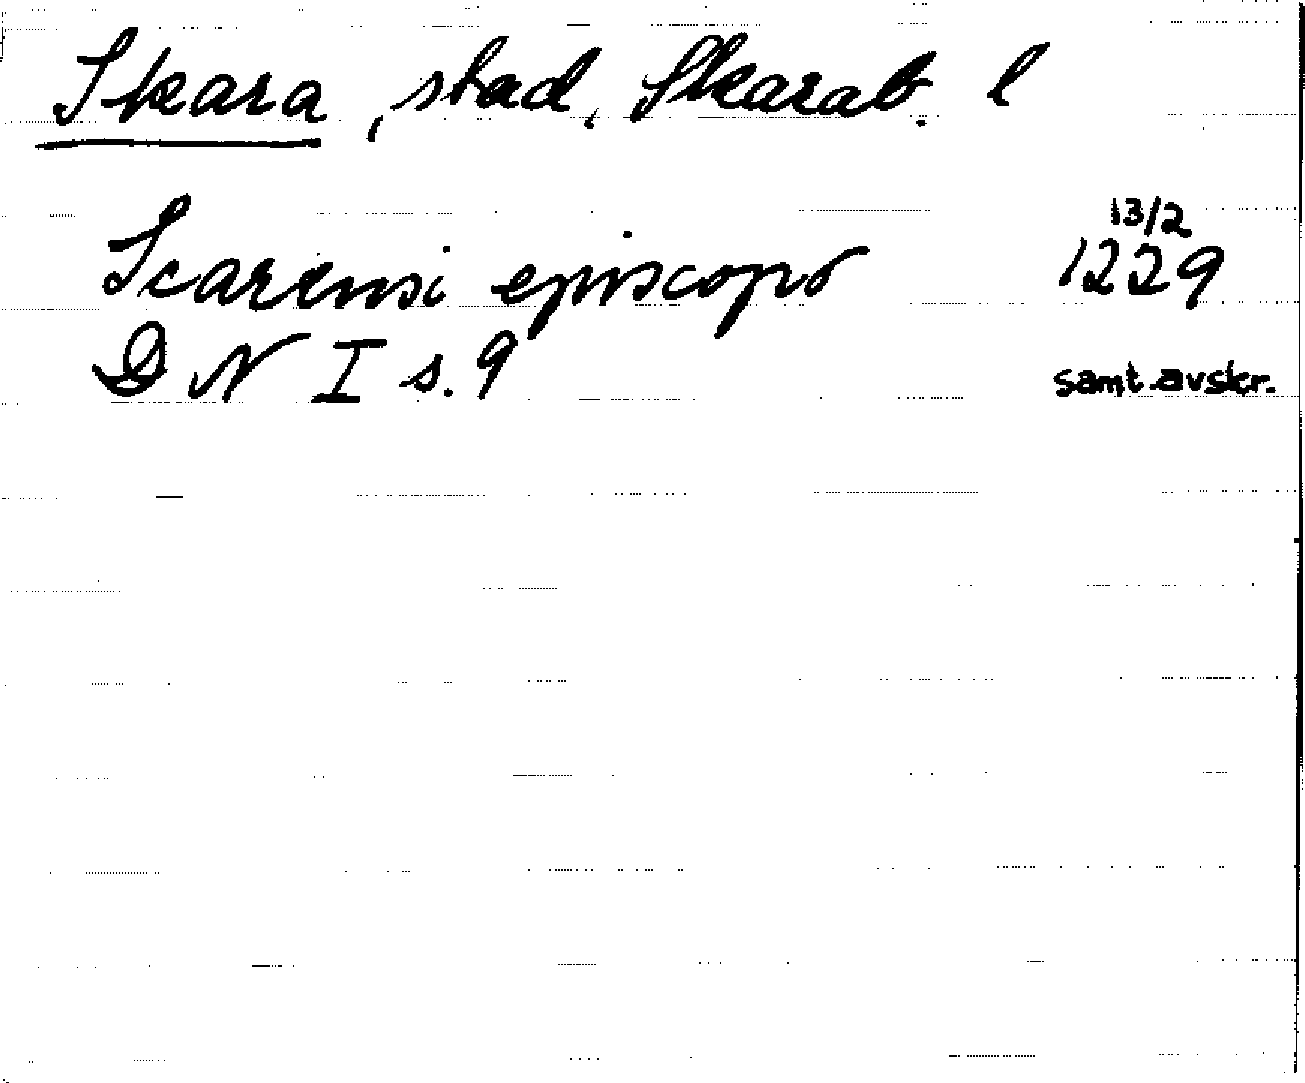 Skara, stad, Skarab. l
Scarensi episcopo 13/2 1229
D N I s. 9 samt. avskr.